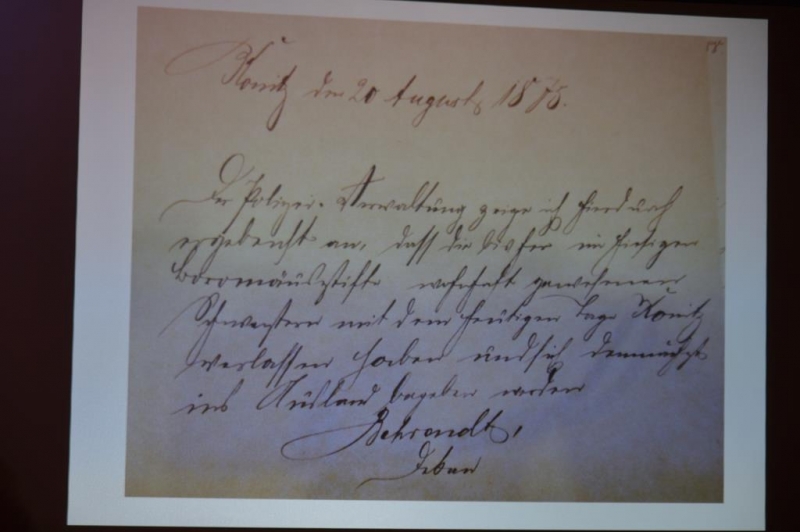 Konitz den 20 August 1878.
Der Polizei-Verwaltung zeige ich hierdurch
ergebenst an, dass die bisher im hiesigen
Boromäusstifte wohnhaft gewesenen
Schwestern mit dem heutigen Tage Konitz
verlassen haben und sich demnächst
ins Ausland begeben werden
Behrendt,
Dekan